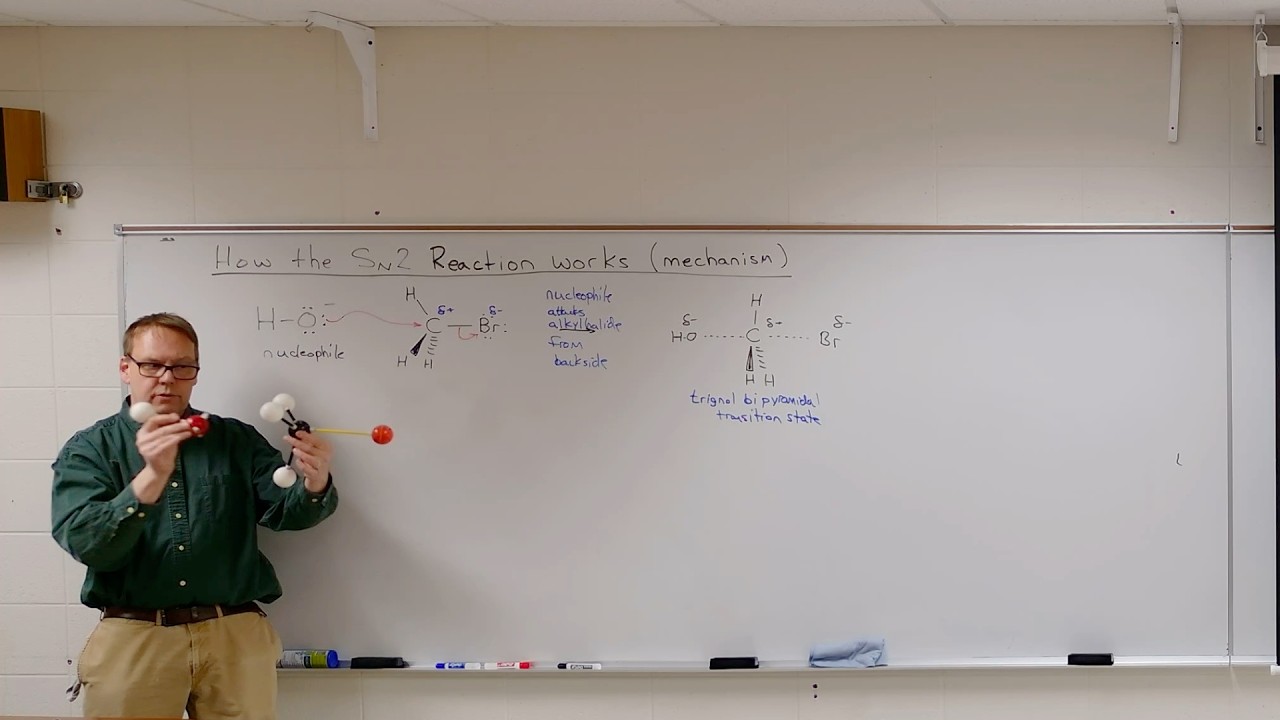 How the SN2 Reaction works (mechanism)
H-Ö:⁻
nucleophile
H
δ+ δ-
C—Br:
H H
nucleophile
attacks
alkylhalide
from
backside
H
δ- δ+ δ-
HO ...... C ...... Br
H H
trignol bipyramidal
transition state